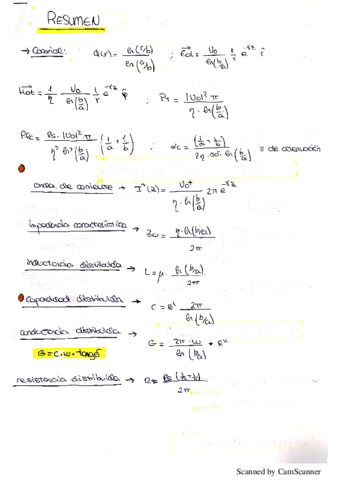 RESUMEN
→ Coaxial: φ(r) = ln(r/b) / ln(a/b) ; E⃗ = V₀ / ln(b/a) · 1/r e^(-γz) r̂
H⃗ = 1/η V₀ / ln(b/a) 1/r e^(-γz) φ̂ ; P_T = |V₀|² π / η · ln(b/a)
Rs · |V₀|² π / η² ln²(b/a) (1/a + 1/b) ; αc = Rs (1/a + 1/b) / 2η · ln(b/a)
onda de corriente → I⁺(z) = V₀⁺ / η · ln(b/a) 2π e^(-γz)
impedancia característica → Z₀ = η · ln(b/a) / 2π
inductancia distribuida → L = μ · ln(b/a) / 2π
capacidad distribuida → C = ε' 2π / ln(b/a)
conductancia distribuida → G = 2π · ω / ln(b/a) · ε''
G = C · ω · tang δ
resistencia distribuida → R = Rs (1/a + 1/b) / 2π
Scanned by CamScanner